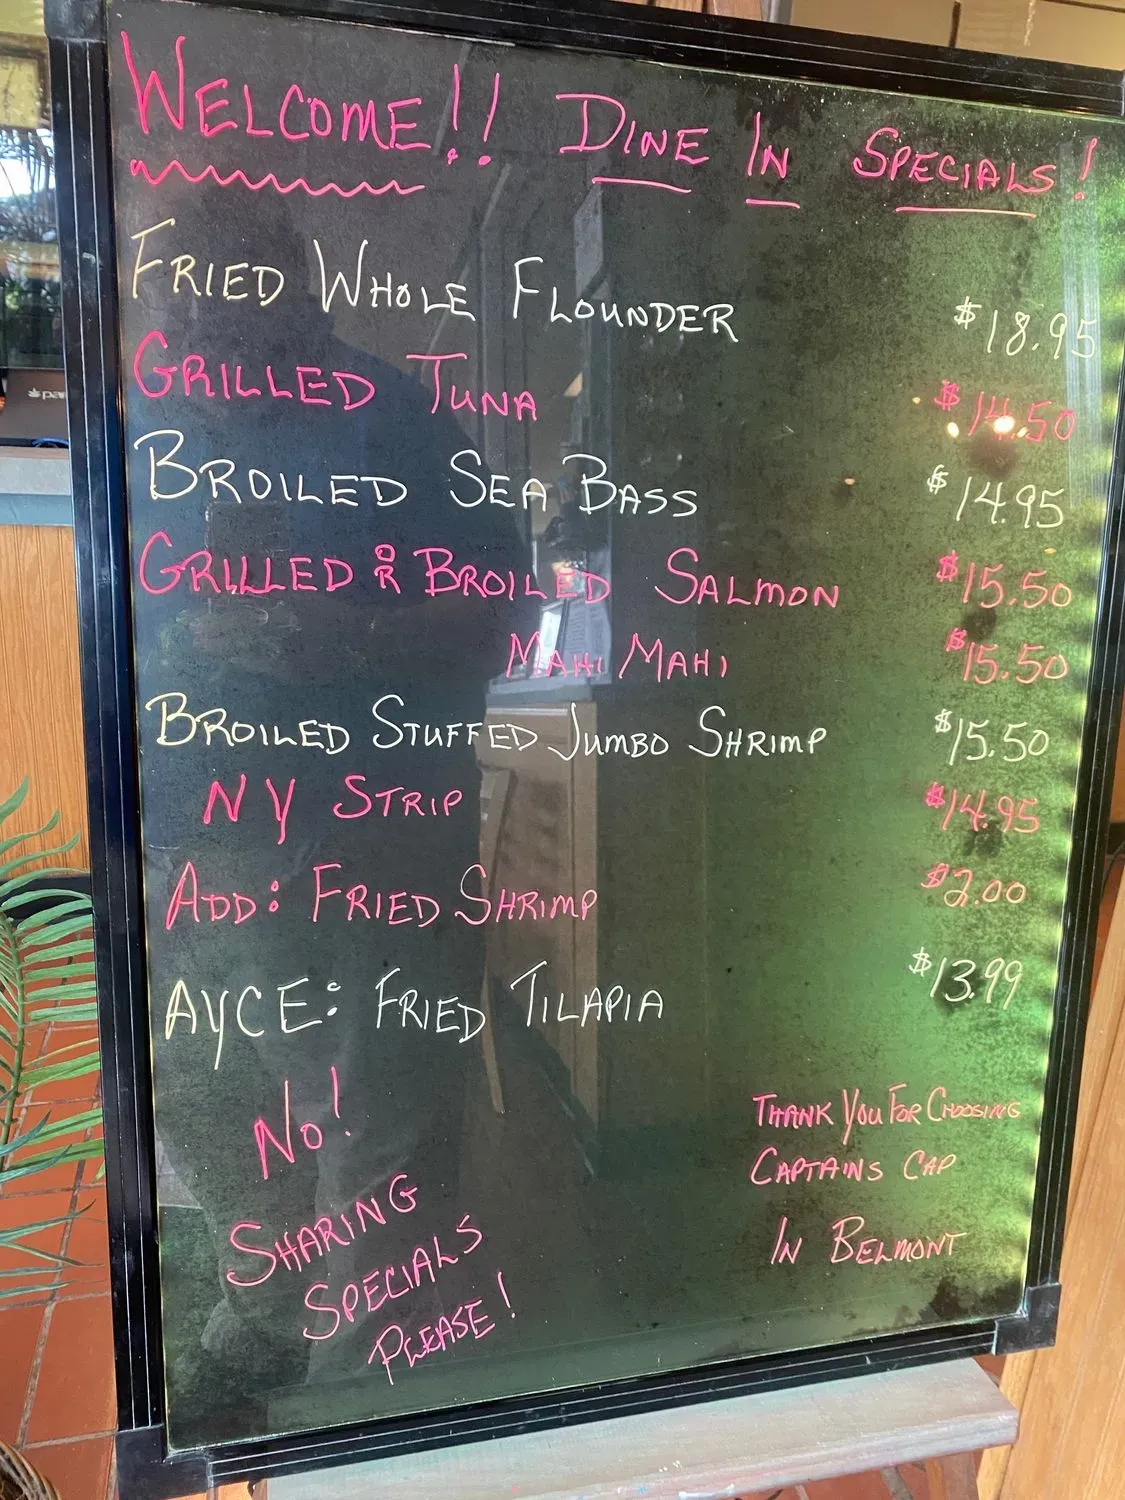 WELCOME!! DINE IN SPECIALS!
FRIED WHOLE FLOUNDER $18.95
GRILLED TUNA $14.50
BROILED SEA BASS $14.95
GRILLED OR BROILED SALMON $15.50
MAHI MAHI $15.50
BROILED STUFFED JUMBO SHRIMP $15.50
NY STRIP $14.95
ADD: FRIED SHRIMP $2.00
AYCE: FRIED TILAPIA $13.99
NO!
SHARING
SPECIALS
PLEASE!
THANK YOU FOR CHOOSING
CAPTAINS CAP
IN BELMONT